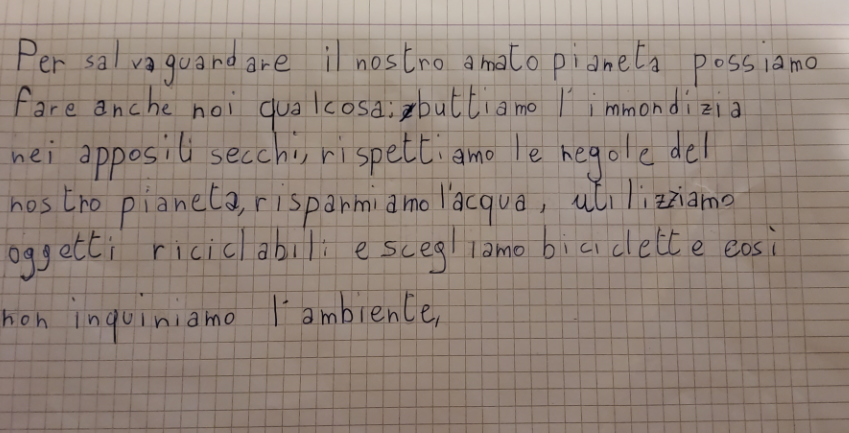 Per salvaguardare il nostro amato pianeta possiamo
fare anche noi qualcosa: buttiamo l'immondizia
nei appositi secchi, rispettiamo le regole del
nostro pianeta, risparmiamo l'acqua, utilizziamo
oggetti riciclabili e scegliamo biciclette così
non inquiniamo l'ambiente,